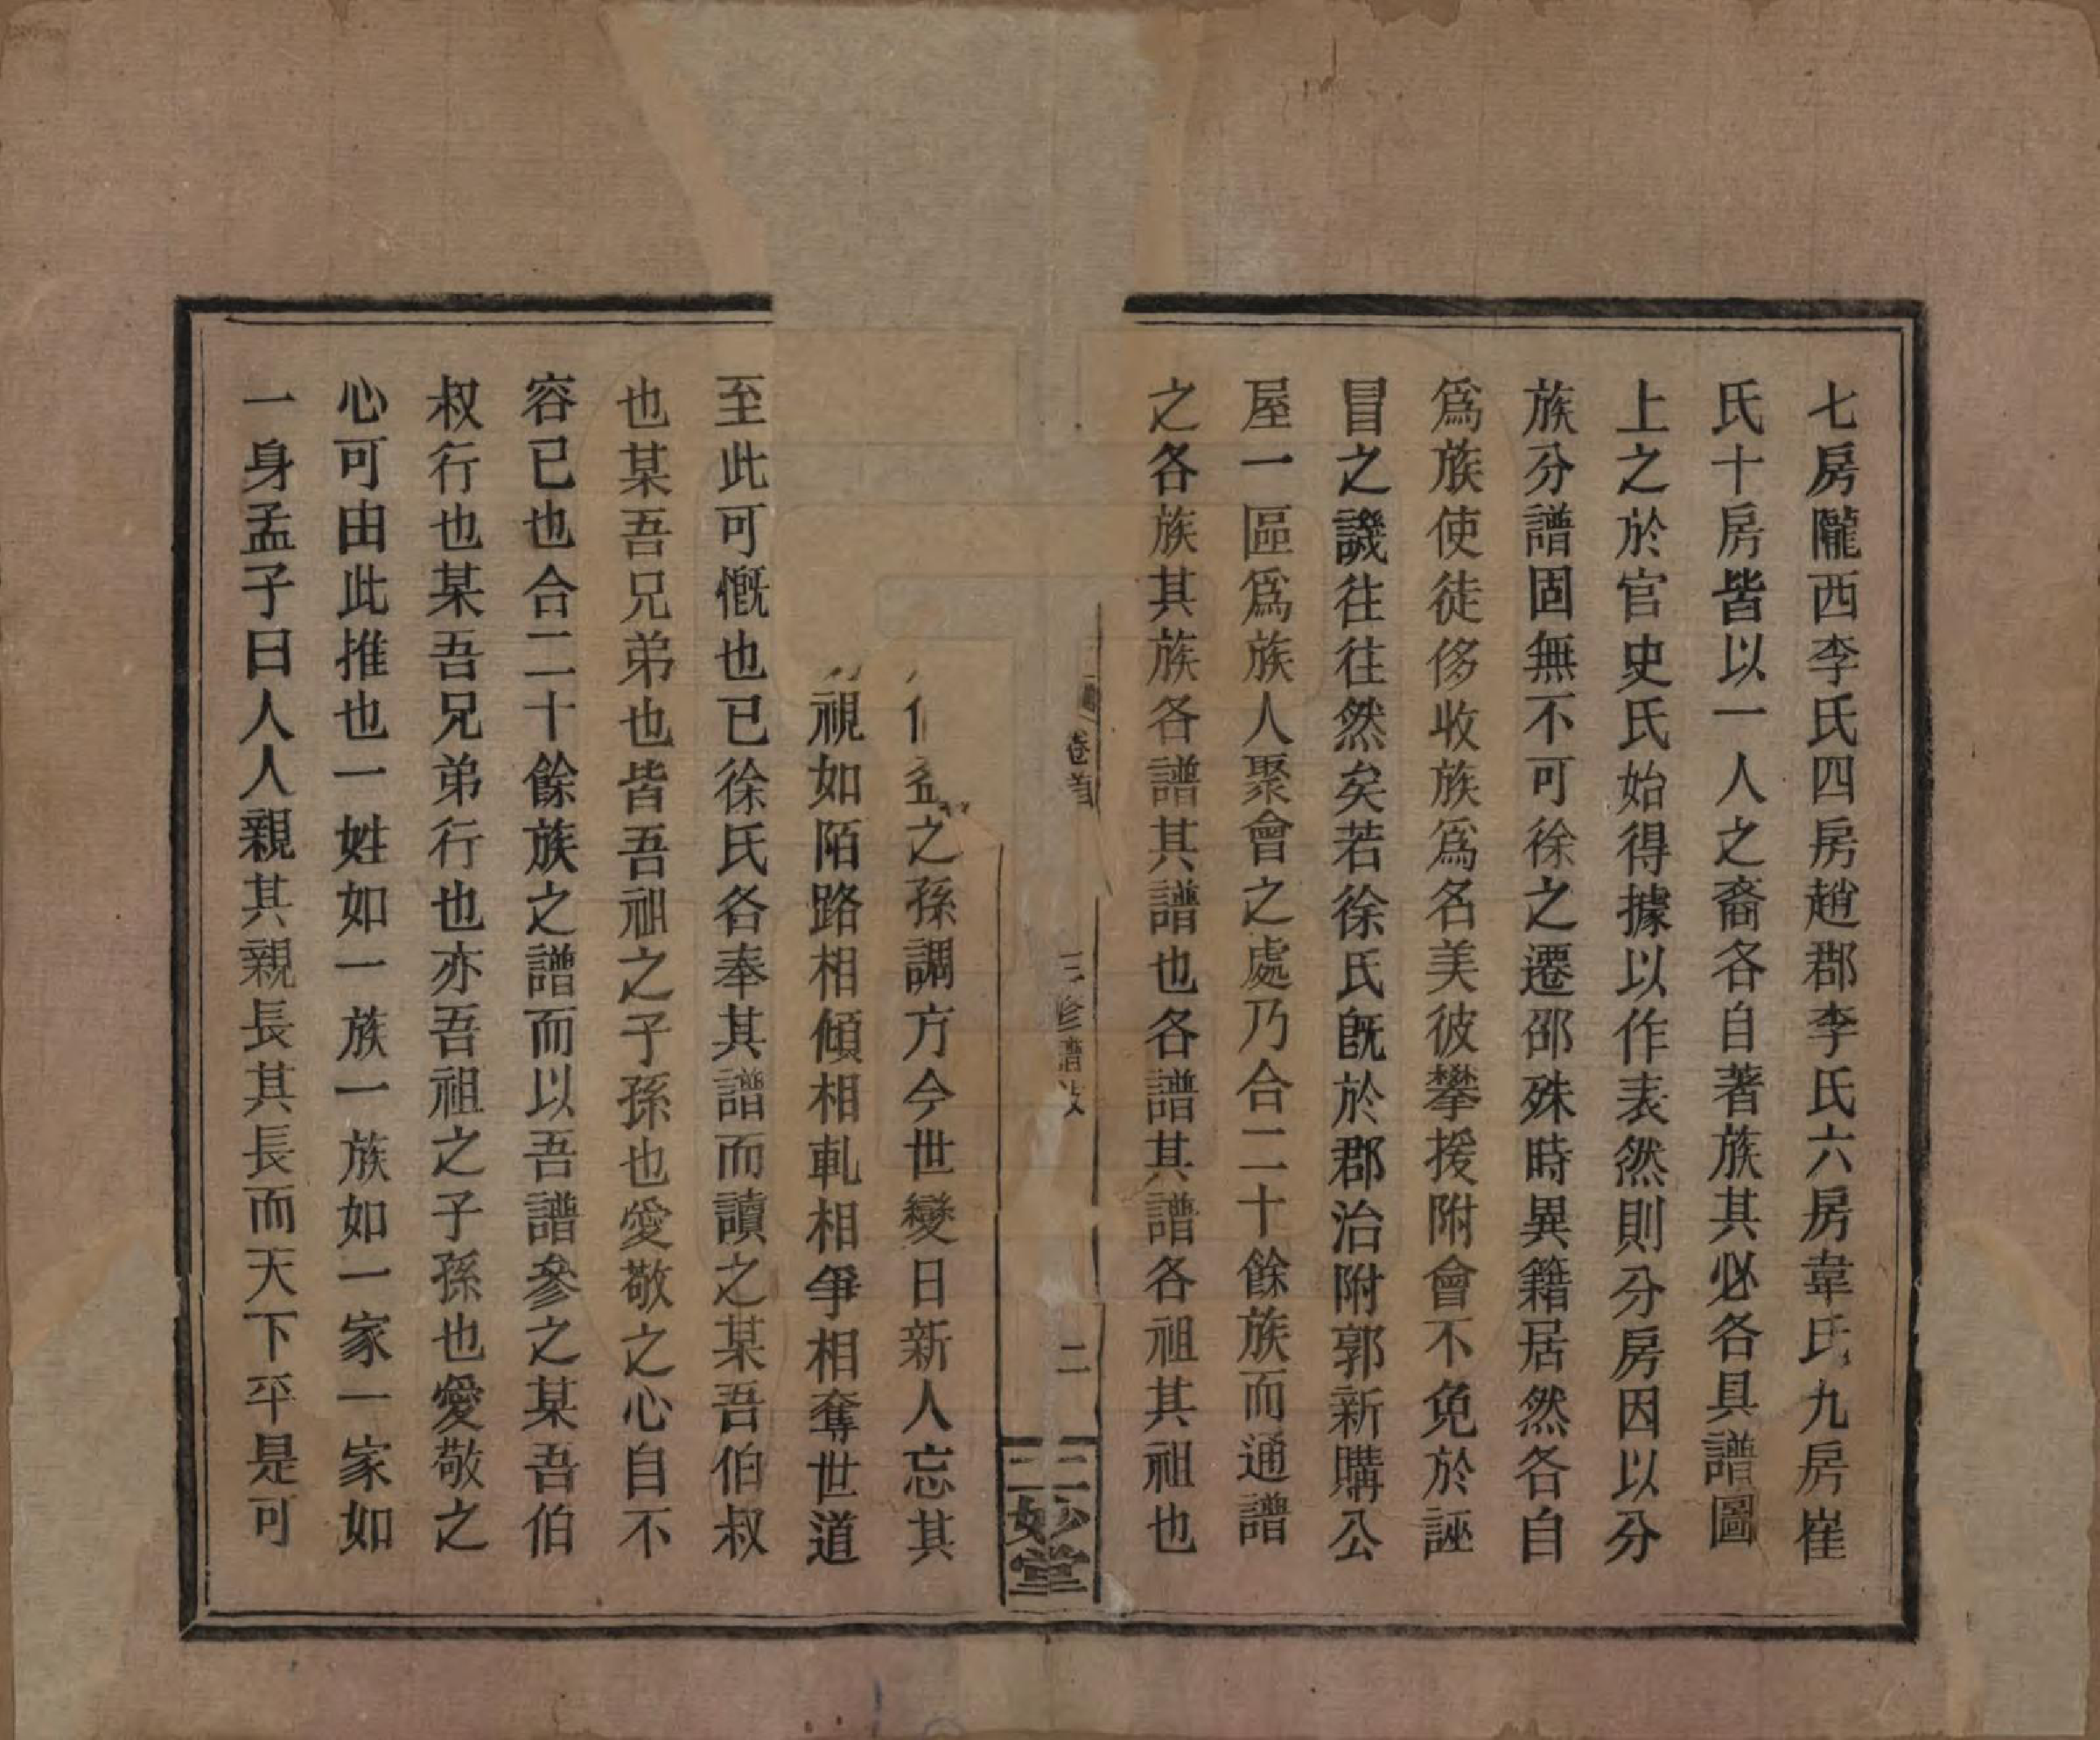 七房隴西李氏四房趙郡李氏六房韋氏九房崔
氏十房皆以一人之裔各自著族其必各具譜圖
上之於官史氏始得據以作表然則分房因以分
族分譜固無不可徐之遷邵殊時異籍居然各自
爲族使徒侈收族爲名美彼攀援附會不免於誣
冒之譏往往然矣若徐氏既於郡治附郭新購公
屋一區爲族人聚會之處乃合二十餘族而通譜
之各族其族各譜其譜也各譜其譜各祖其祖也
卷首
三修譜
二
三妙堂
之孫調方今世變日新人忘其
視如陌路相傾相軋相爭相奪世道
至此可慨也已徐氏各奉其譜而讀之某吾伯叔
也某吾兄弟也皆吾祖之子孫也愛敬之心自不
容已也合二十餘族之譜而以吾譜參之某吾伯
叔行也某吾兄弟行也亦吾祖之子孫也愛敬之
心可由此推也一姓如一族一族如一家一家如
一身孟子曰人人親其親長其長而天下平是可